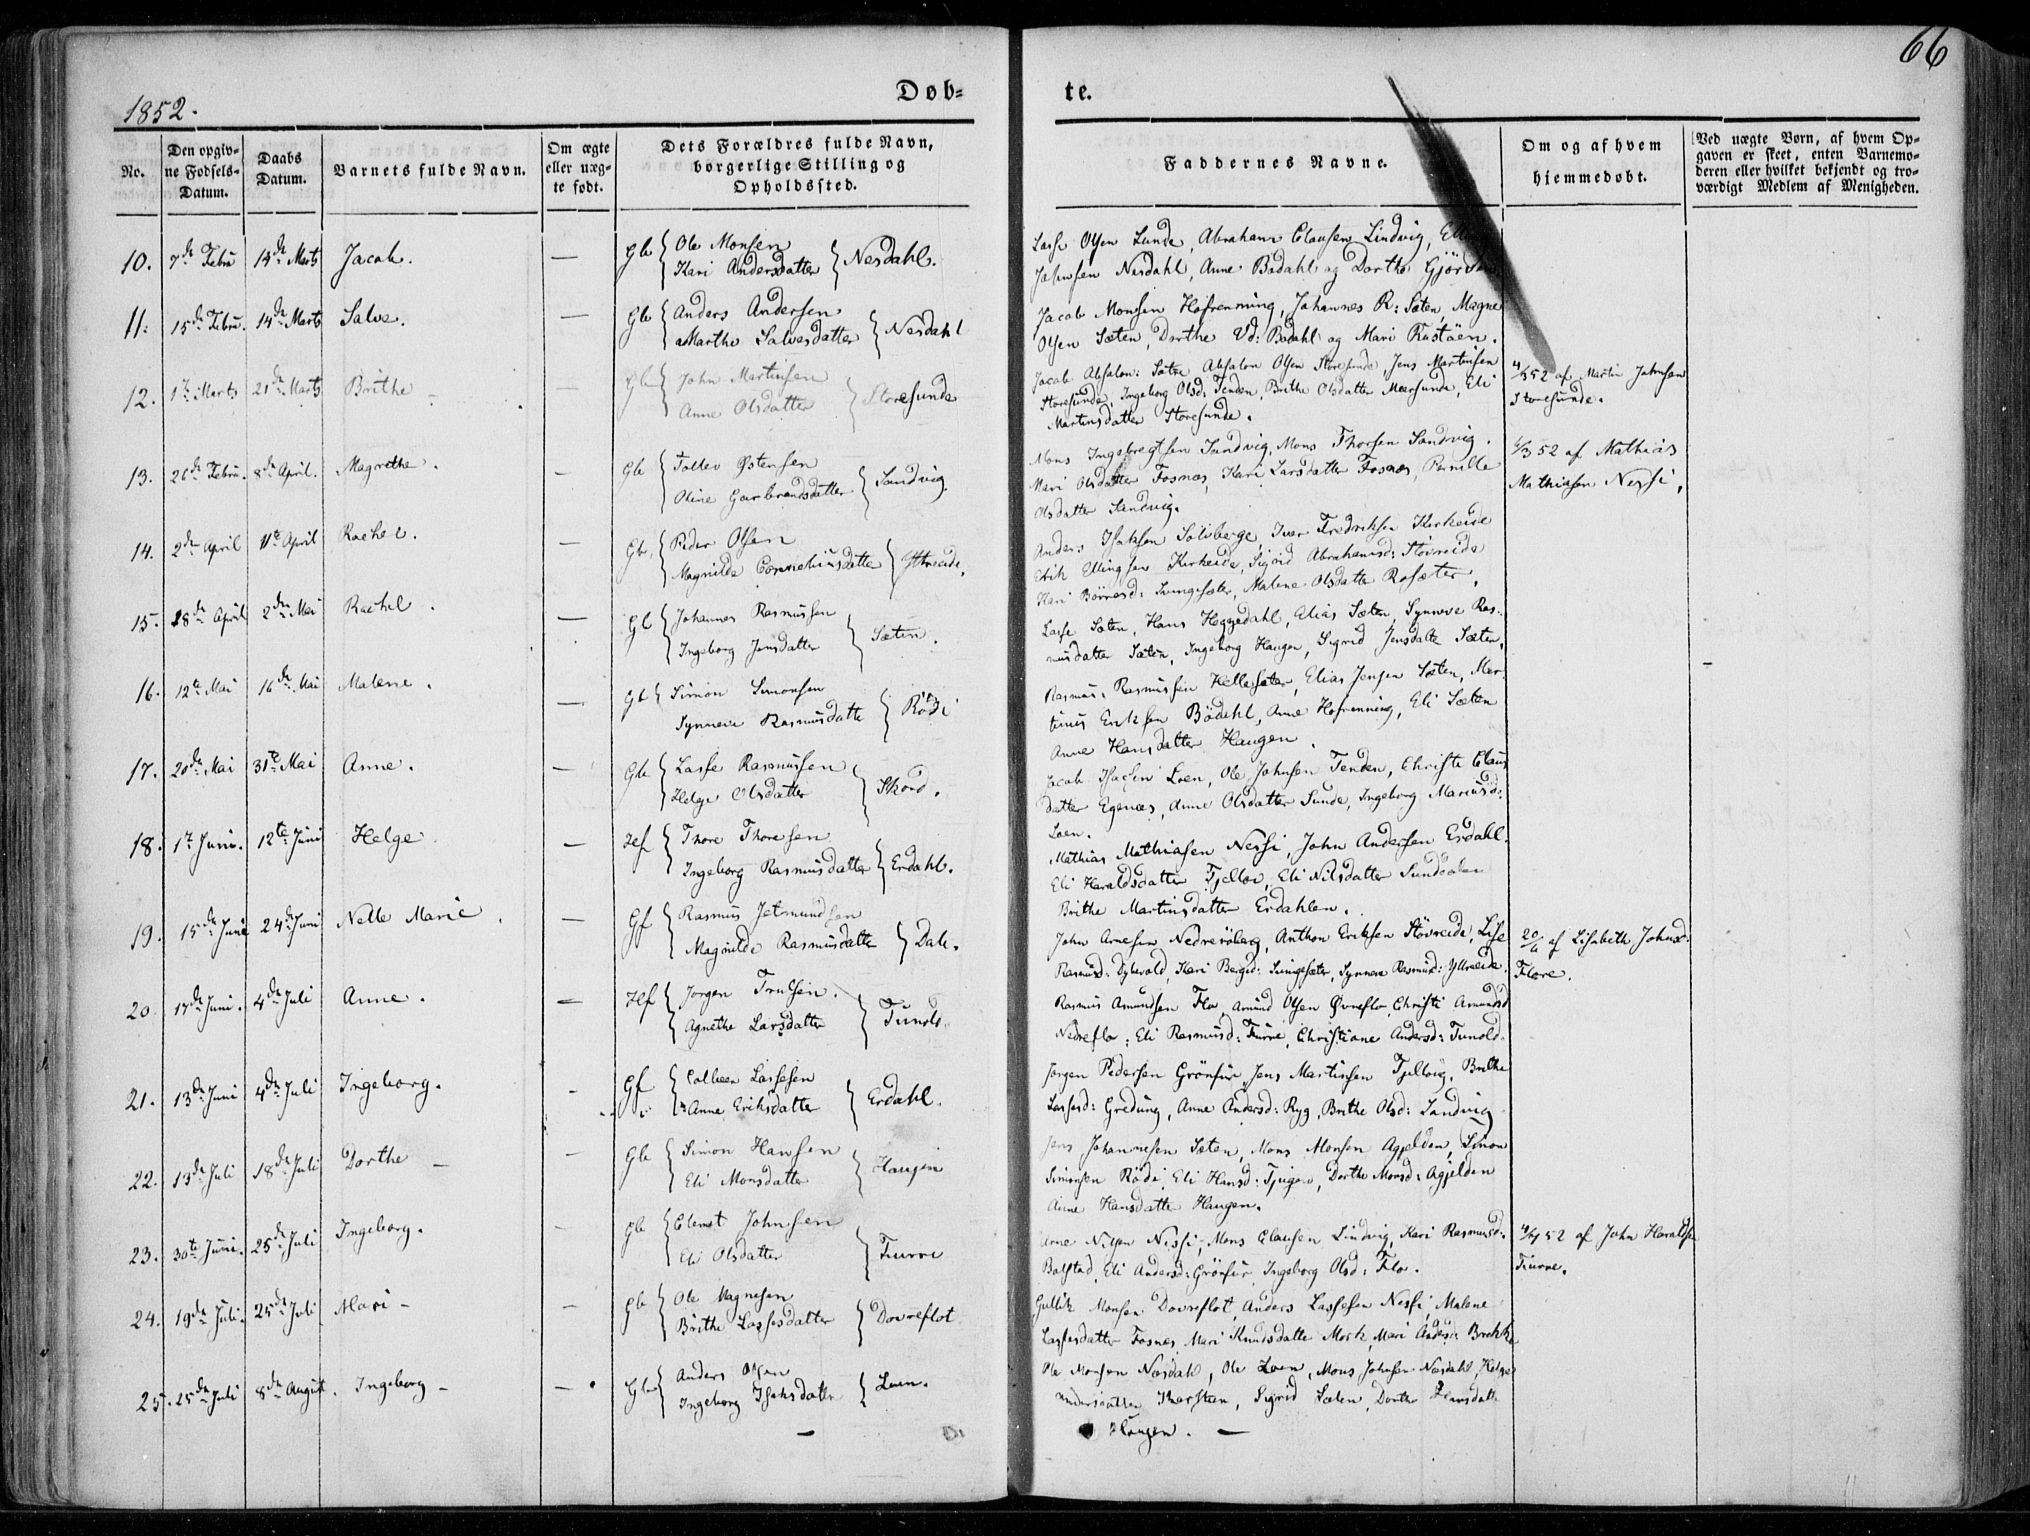 66
1852.
Døb=
te.
No.
Den opgiv=
ne Fødsels=
Datum.
Daabs
Datum.
Barnets fulde Navn.
Om ægte
eller uæg=
te født.
Dets Forældres fulde Navn,
borgerlige Stilling og
Opholdssted.
Faddernes Navne.
Om og af hvem
hjemmedøbt.
Ved uægte Børn, af hvem Op=
gaven er skeet, enten Barnemo=
deren eller hvilket bekjendt og tro=
værdigt Medlem af Menigheden.
10. 7de Febru 14de Marts Jacob. — Gb { Ole Monsen
Kari Andersdatter } Nesdahl.
Lasse Olsen Sunde, Abraham Clausen Lindvig,
Johnsen Nesdahl, Anne Bødahl og Dorthe
11. 15de Febru. 14de Marts Salve. — Gb { Anders Andersen
Marthe Salvesdatter } Nesdahl
Jacob Monsen Hofrenning, Johannes R: Sæten, Magne
Olsen Sæten, Dorthe Bødahl og Mari Rustøen.
12. 1te Marts 21de Marts Brithe — Gb { John Martinsen
Anne Olsdatter } Storesunde
Jacob Absalon: Sætre Absalon Olsen Storesunde, Jens Martinsen
Storesunde, Ingeborg Olsd: Tenden, Brithe Olsdatter Meersunde, Eli
Martinsdatter Storesunde.
4/3 52 af Martin Johnsen
Storesunde.
13. 26de Febru. 8de April. Magrethe. — Gb { Tollev Østensen
Oline Garbrandsdatter } Sandvig.
Mons Ingebregtsen Sandvig, Mons Thorsen Sandvig.
Mari Olsdatter Fosnæs, Kari Larsdatter Fosnæs, Pernille
Olsdatter Sandvig.
6/3 52 af Mathias
Mathiasen Nessi.
14. 2de April 11te April Rachel. — Gb. { Peder Olsen
Magnilde Corneliusdatter } Ytreeide.
Anders Isaksen Solvberge Iver Fredriksen Kirkeide
Erik Ellingsen Kirkeide, Sigrid Abrahamsd: Støvreide
Kari Børresd: Svingesæter, Malene Olsdatter Rosæter.
15. 18de April 2den Mai Rachel. — Gb { Johannes Rasmussen
Ingeborg Jensdatter } Sæten.
Lasse Sæten, Hans Heggedahl, Elias Sæten, Synneve Ras=
musdatter Sæten, Ingeborg Haugen, Sigrid Jensdatter Sæten.
16. 12te Mai 16de Mai Malene. — Gb { Simon Simonsen
Synneve Rasmusdatter } Rödi
Rasmus Rasmussen Hellesæter, Elias Jensen Sæten, Mar=
tinus Eriksen Bødahl, Anne Hofrenning, Eli Sæten
Anne Hansdatter Haugen.
17. 20de Mai 31te Mai Anne. — Gb { Lasse Rasmussen
Helge Olsdatter } Skord.
Jacob Isachsen Loen, Ole Johnsen Tenden, Christi Claus
datter Egenæs, Anne Olsdatter Sunde, Ingeborg Mariusd:
Loen.
18. 1te Juni. 12te Juni Helge — Jef { Thore Thoresen
Ingeborg Rasmusdatter } Erdahl.
Mathias Mathiasen Nessi, John Andersen Erdahl.
Eli Haraldsdatter Fjelloe, Eli Nilsdatter
Brithe Martinsdatter Erdahlen.
19. 15de Juni 24de Juni Nelle Marie. — Gf { Rasmus Jetmundsen
Magnilde Rasmusdatter } Dale.
John Arnesen Nedreröberg, Anthon Eriksen Støvreide, Lise
Rasmusd: Dybevold, Kari Bergid: Svingesæter, Synneve Rasmusd: Ytreeide.
20/6 af Lisabeth Johnsd:
Flore.
20. 17de Juni. 4de Juli Anne. — Jef { Jørgen Trulsen.
Agnethe Larsdatter } Tunold.
Rasmus Amundsen Flo, Amund Olsen Øvreflo, Christi Amundsd
Nedreflo, Eli Rasmusd: Furre, Christiane Andersd: Tunold.
21. 13de Juni 4de Juli Ingeborg. — Gf { Colbeen Lassesen
Anne Eriksdatter } Erdahl.
Jørgen Pedersen Grönfur, Jens Martinsen Fjelloe, Brithe
Lassesd: Greding, Anne Andersd: Ryg, Brithe Olsd: Sandvig
22. 13de Juli 18de Juli Dorthe — Gb { Simon Hansen
Eli Monsdatter } Haugen
Jens Johannesen Sæten, Mons Monsen Agjelden, Simon
Simonsen Rödi, Eli Hansd: Tjugen, Dorthe Monsd: Agjelden
Anne Hansdatter Haugen.
23. 30te Juni. 25de Juli Ingeborg. — Gb { Clemet Johnsen
Eli Olsdatter } Furre
Arne Nilsen Nessi, Mons Clausen Lindvig, Kari Rasmusd:
Bolstad, Eli Andersd: Grönfur, Ingeborg Olsd: Flo.
4/7 52 af John Haraldsen
Furre.
24. 19de Juli. 25de Juli Mari — Gb { Ole Magnesen
Brithe Lassesdatter } Dovreflot
Gullik Monsen Dovreflot, Anders Lassesen Nessi, Malene
Lassesdatter Fosnæs, Mari Knudsdatter Mork, Mari Andersd: Brekke
25. 25de Juli 8de August. Ingeborg — Gb { Anders Olsen
Ingeborg Isaksdatter } Loen.
Ole Monsen Næsdahl, Ole Loen, Mons Johnsen Næsdahl, Helge
Andersdatter, Sigrid Sæten, Dorthe Hansdatter
Haugen. —